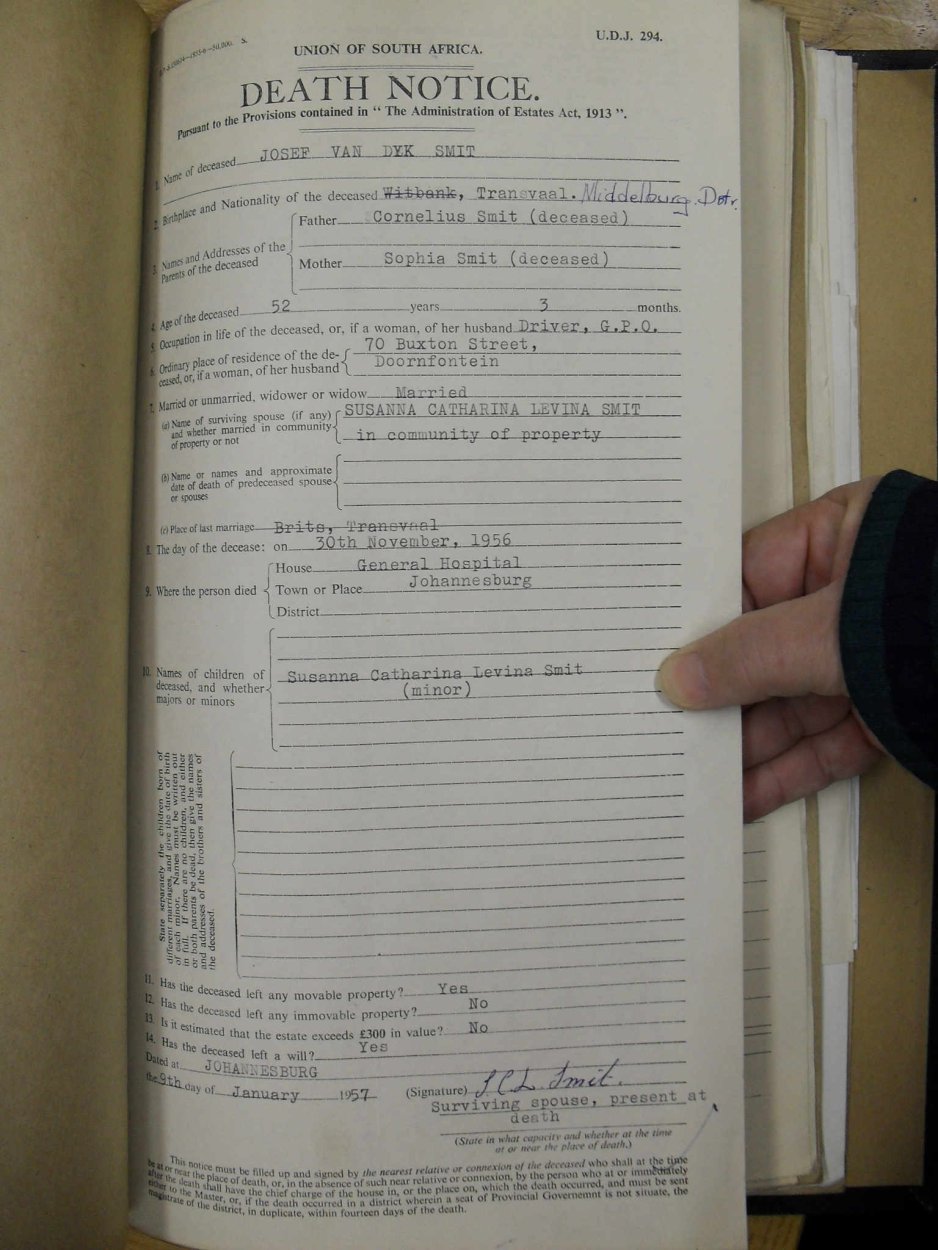 U.D.J. 294.
UNION OF SOUTH AFRICA.
DEATH NOTICE.
Pursuant to the Provisions contained in “ The Administration of Estates Act, 1913 ”.
1. Name of deceased JOSEF VAN DYK SMIT
2. Birthplace and Nationality of the deceased Witbank, Transvaal. Middelburg, Dstr.
3. Names and Addresses of the Parents of the deceased
Father Cornelius Smit (deceased)
Mother Sophia Smit (deceased)
4. Age of the deceased 52 years 3 months.
5. Occupation in life of the deceased, or, if a woman, of her husband Driver, G.P.O.
6. Ordinary place of residence of the de-
ceased, or, if a woman, of her husband
70 Buxton Street,
Doornfontein
7. Married or unmarried, widower or widow Married
(a) Name of surviving spouse (if any)
and whether married in community
of property or not
SUSANNA CATHARINA LEVINA SMIT
in community of property
(b) Name or names and approximate
date of death of predeceased spouse
or spouses
(c) Place of last marriage Brits, Transvaal
8. The day of the decease: on 30th November, 1956
9. Where the person died
House General Hospital
Town or Place Johannesburg
District
10. Names of children of
deceased, and whether
majors or minors
Susanna Catharina Levina Smit
(minor)
State separately the children born of
different marriages, and give the date of birth
of each minor. Names must be written out
in full. If there are no children, and either
or both parents be dead, then give the names
and addresses of the brothers and sisters of
the deceased.
11. Has the deceased left any movable property? Yes
12. Has the deceased left any immovable property? No
13. Is it estimated that the estate exceeds £300 in value? No
14. Has the deceased left a will? Yes
Dated at JOHANNESBURG
the 9th day of January 1957
(Signature) S C L Smit.
Surviving spouse, present at
death
(State in what capacity and whether at the time
at or near the place of death.)
This notice must be filled up and signed by the nearest relative or connexion of the deceased who shall at the time
be at or near the place of death, or, in the absence of such near relative or connexion, by the person who at or immediately
after the death shall have the chief charge of the house in, or the place on, which the death occurred, and must be sent
either to the Master, or, if the death occurred in a district wherein a seat of Provincial Governemnt is not situate, the
magistrate of the district, in duplicate, within fourteen days of the death.